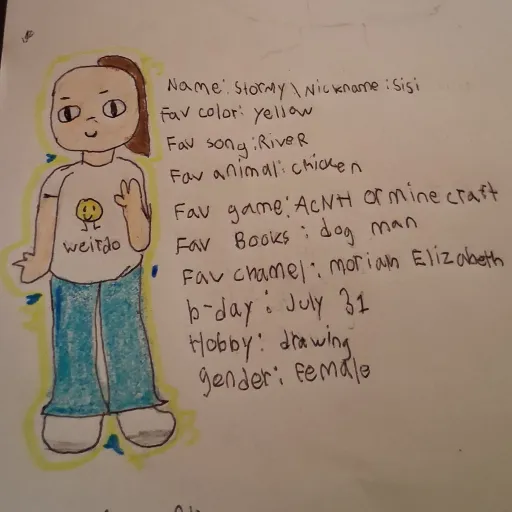 Name: Stormy \ Nickname: Sisi
Fav color: yellow
Fav song: River
Fav animal: chicken
Fav game: ACNH or minecraft
Fav Books: dog man
Fav channel: moriah Elizabeth
b-day: July 31
Hobby: drawing
gender: Female
weirdo